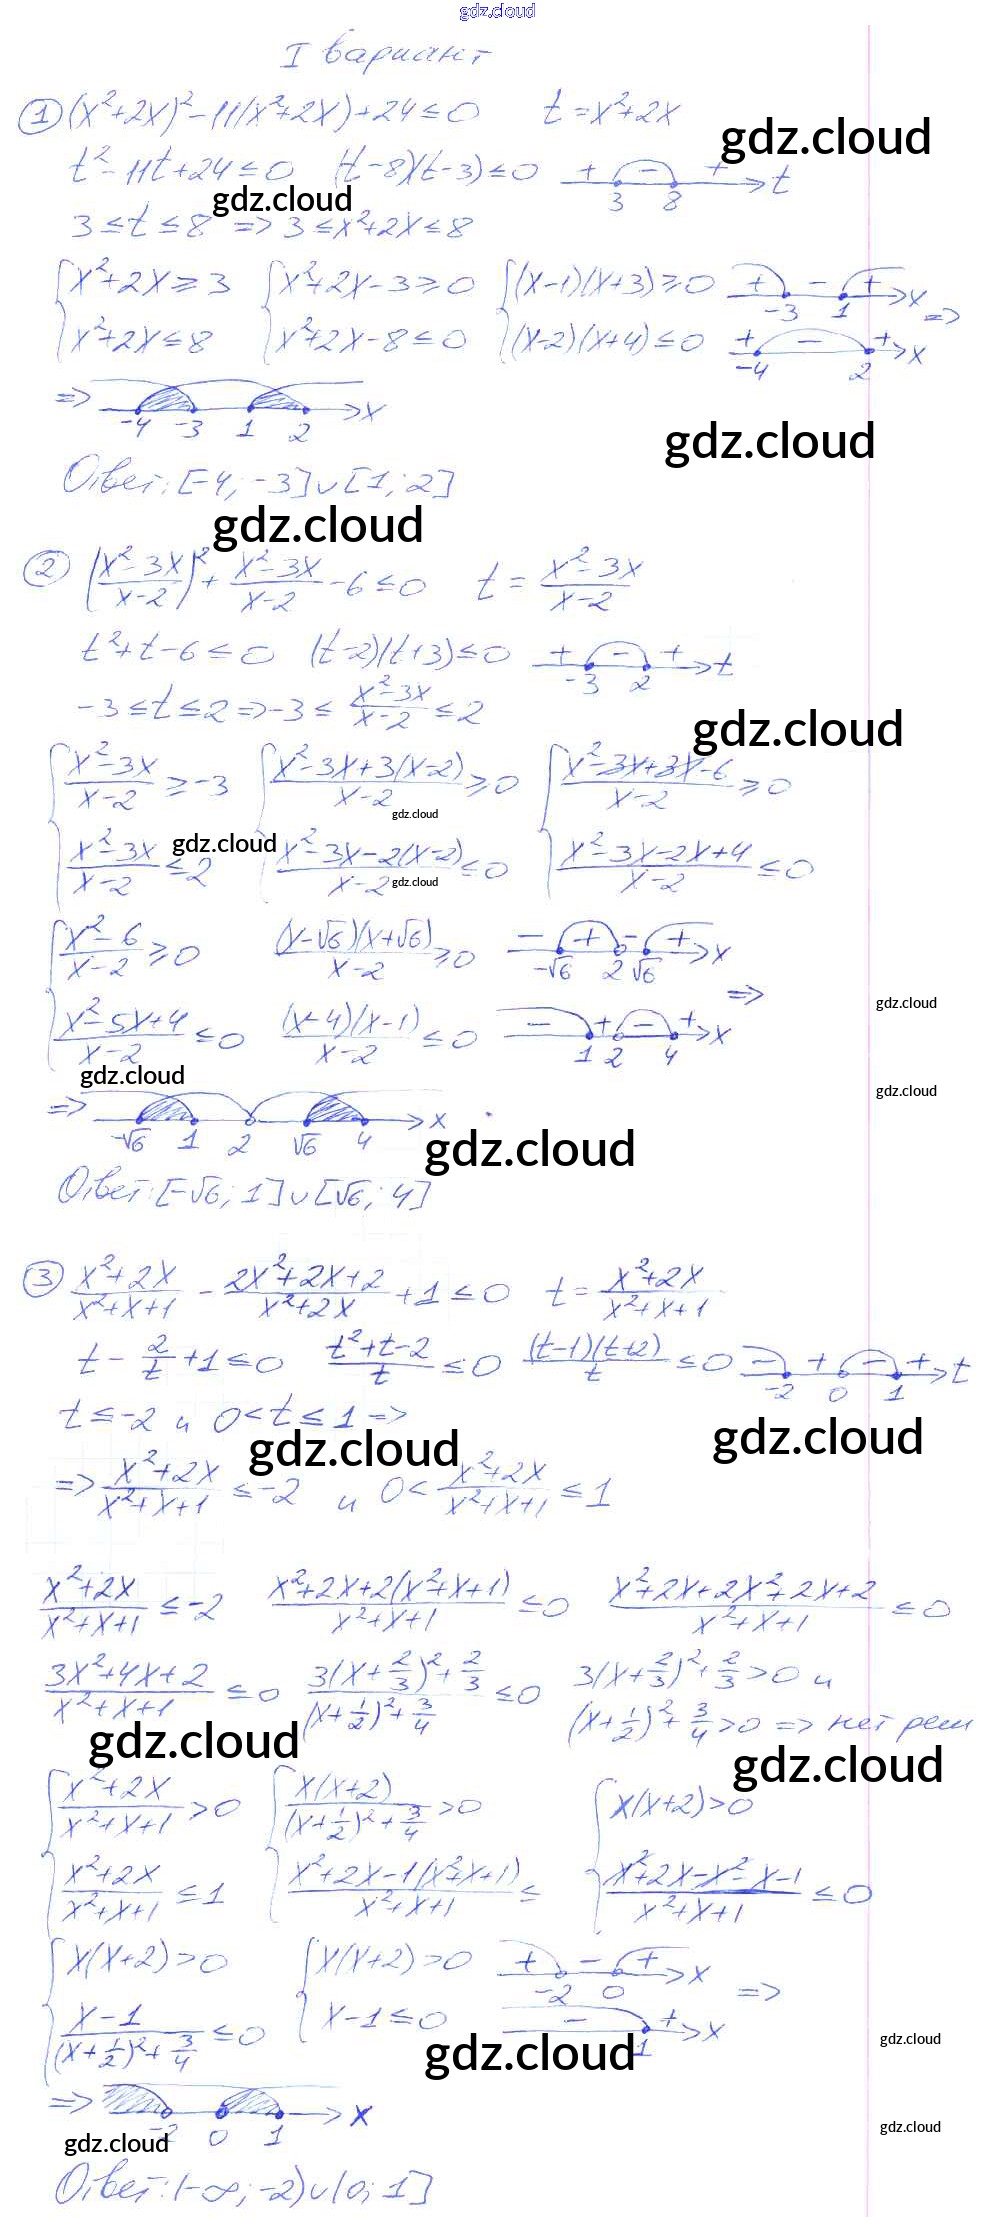 gdz.cloud
I вариант
① (x²+2x)²-11(x²+2x)+24≤0 t=x²+2x
gdz.cloud
t²-11t+24≤0 (t-8)(t-3)≤0 + - + t
3 8
gdz.cloud
3≤t≤8 => 3≤x²+2x≤8
{x²+2x≥3 {x²+2x-3≥0 {(x-1)(x+3)≥0 + - + x
-3 1 =>
{x²+2x≤8 {x²+2x-8≤0 {(x-2)(x+4)≤0 + - + x
-4 2
=> -4 -3 1 2 x
gdz.cloud
Ответ: [-4; -3]∪[1; 2]
gdz.cloud
② ((x²-3x)/(x-2))² + (x²-3x)/(x-2) -6≤0 t = (x²-3x)/(x-2)
t²+t-6≤0 (t-2)(t+3)≤0 + - + t
-3 2
-3≤t≤2 => -3≤ (x²-3x)/(x-2) ≤2
gdz.cloud
{(x²-3x)/(x-2) ≥-3 {(x²-3x+3(x-2))/(x-2) ≥0 {(x²-3x+3x-6)/(x-2) ≥0
gdz.cloud
gdz.cloud
{(x²-3x)/(x-2) ≤2 {(x²-3x-2(x-2))/(x-2) ≤0 {(x²-3x-2x+4)/(x-2) ≤0
gdz.cloud
{(x²-6)/(x-2) ≥0 (x-√6)(x+√6)/(x-2) ≥0 - + - + x
-√6 2 √6
=>
gdz.cloud
{(x²-5x+4)/(x-2) ≤0 (x-4)(x-1)/(x-2) ≤0 - + - + x
1 2 4
gdz.cloud
gdz.cloud
=> -√6 1 2 √6 4 x
gdz.cloud
Ответ: [-√6; 1]∪[√6; 4]
③ (x²+2x)/(x²+x+1) - (2x²+2x+2)/(x²+2x) +1≤0 t= (x²+2x)/(x²+x+1)
t - 2/t +1≤0 (t²+t-2)/t ≤0 (t-1)(t+2)/t ≤0 - + - + t
-2 0 1
t≤-2 и 0<t≤1 =>
gdz.cloud
gdz.cloud
=> (x²+2x)/(x²+x+1) ≤-2 и 0< (x²+2x)/(x²+x+1) ≤1
(x²+2x)/(x²+x+1) ≤-2 (x²+2x+2(x²+x+1))/(x²+x+1) ≤0 (x²+2x+2x²+2x+2)/(x²+x+1) ≤0
(3x²+4x+2)/(x²+x+1) ≤0 (3(x+2/3)²+2/3)/((x+1/2)²+3/4) ≤0 3(x+2/3)²+2/3>0 и
(x+1/2)²+3/4>0 => нет реш
gdz.cloud
gdz.cloud
{(x²+2x)/(x²+x+1) >0 {x(x+2)/((x+1/2)²+3/4) >0 {x(x+2)>0
{(x²+2x)/(x²+x+1) ≤1 {(x²+2x-1(x²+x+1))/(x²+x+1) ≤ {(x²+2x-x²-x-1)/(x²+x+1) ≤0
{x(x+2)>0 {x(x+2)>0 + - + x
-2 0 =>
{(x-1)/((x+1/2)²+3/4) ≤0 {x-1≤0 - + x
1
gdz.cloud
gdz.cloud
=> -2 0 1 x
gdz.cloud
gdz.cloud
Ответ: (-∞; -2)∪(0; 1]